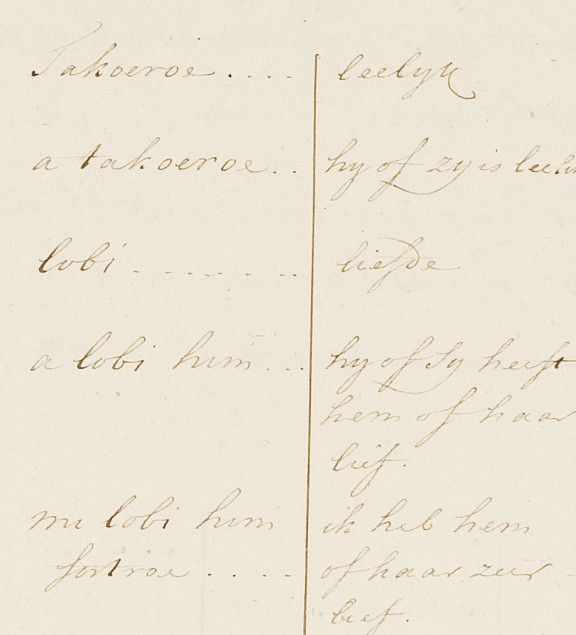 Takoeroe .... leelyk
a takoeroe .. hy of zy is
lobi ........ liefde
a lobi him ... hy of Sy heeft
hem of haar
lief.
mi lobi him ik heb hem
fortroe ..... of haar zeer
lief.